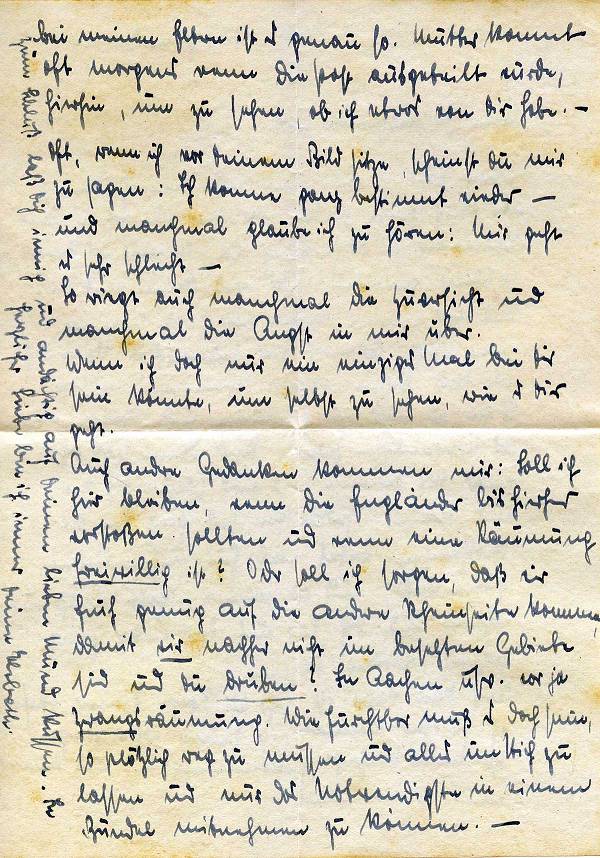 bei meinen Eltern ist es genau so. Mutter kommt
oft morgens wenn die Post ausgeteilt wurde,
hierhin, um zu sehen, ob ich etwas von Dir habe. —
Oft, wenn ich vor deinem Bild sitze, scheinst du mir
zu sagen: Ich komme ganz bestimmt wieder —
und manchmal glaube ich zu hören: Mir geht
es sehr schlecht —
So wiegt auch manchmal die Zuversicht und
manchmal die Angst in mir über.
Wenn ich doch nur ein einziges Mal bei dir
sein könnte, um selbst zu sehen, wie es dir
geht.
Auch andre Gedanken kommen mir: Soll ich
hier bleiben, wenn die Engländer bis hierher
vorstoßen sollten und wenn eine Räumung
freiwillig ist? Oder soll ich sorgen, daß wir
früh genug auf die andere Rheinseite kommen,
damit wir nachher nicht im besetzten Gebiete
sind und du drüben? In Aachen usw. war ja
Zwangsräumung. Wie furchtbar muß es doch sein,
so plötzlich weg zu müssen und alles im Stich zu
lassen und nur das Notwendigste in einem
Bündel mitnehmen zu können. —
Zum Schluß laß dich innig und andächtig auf deinen lieben Mund küssen. In
herzlicher Liebe bin ich immer deine